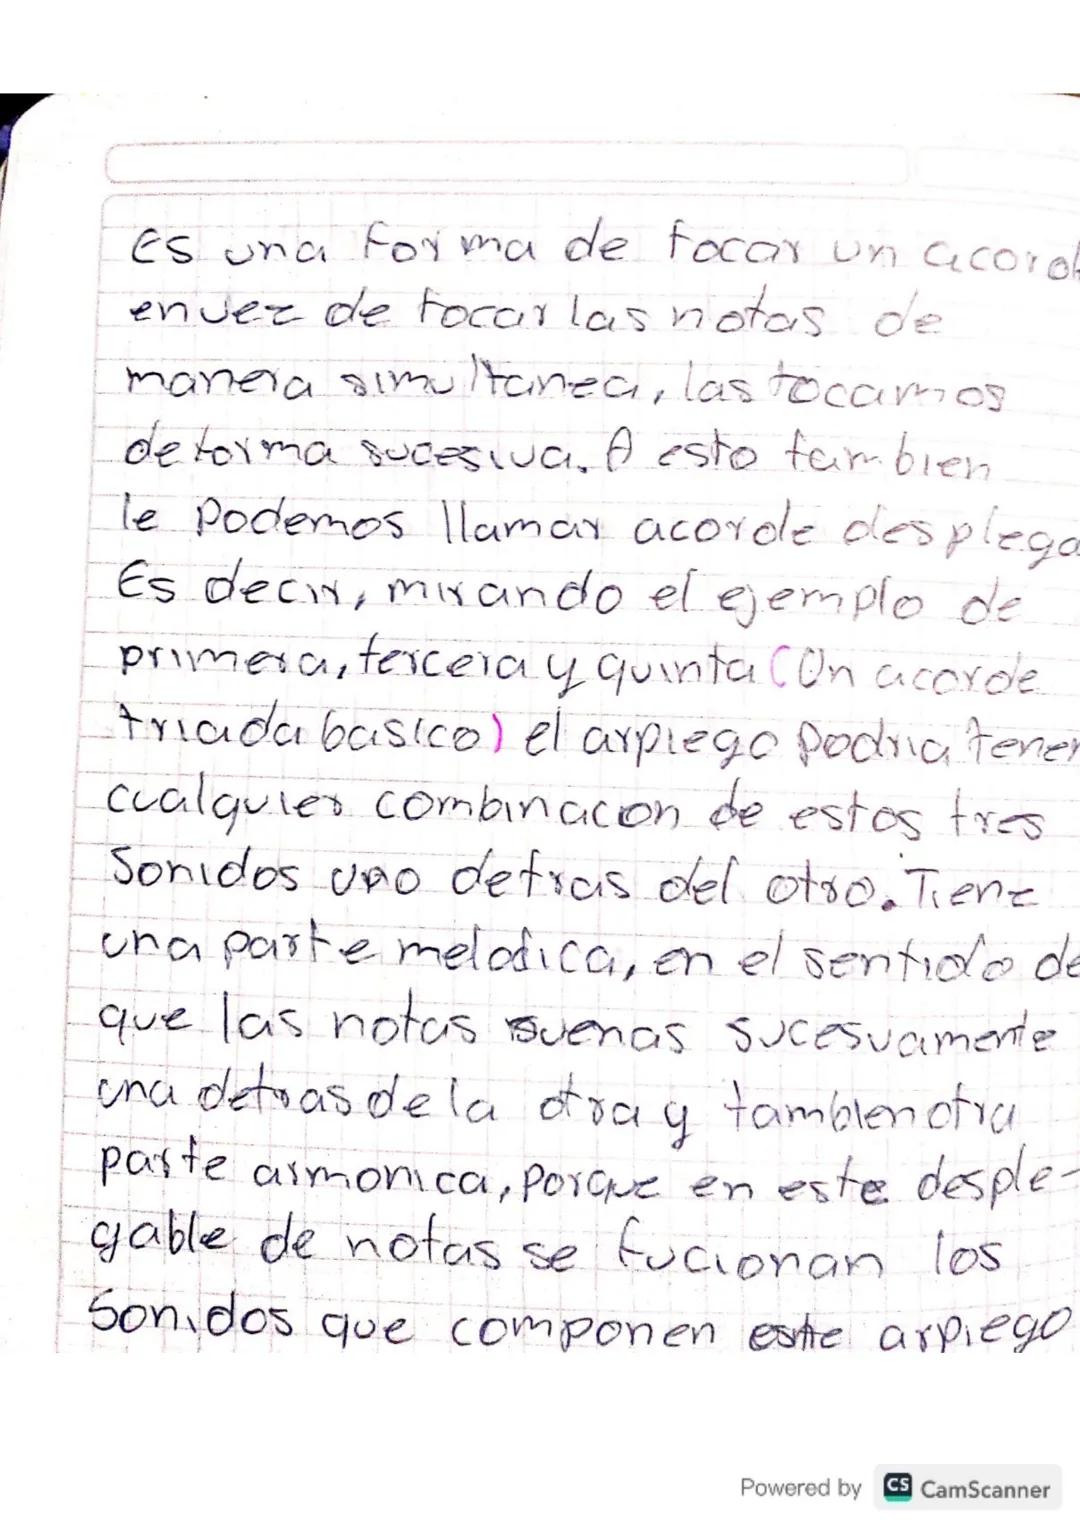 Es una forma de tocar un acord
envez de tocar las notas de
manera simultanea, las tocamos
de forma sucesiva. A esto tambien
le podemos llamar acorde desplega
Es decir, mirando el ejemplo de
primera, tercera y quinta (Un acorde
triada basico) el arpiego podria tener
cualquier combinacon de estos tres
Sonidos uno detras del otro. Tiene
una parte melodica, en el sentido de
que las notas suenas sucesuamente
una detras de la otra y tambien otra
parte armonica, porque en este desple-
gable de notas se fucionan los
Sonidos que componen este arpiego
Powered by CS CamScanner